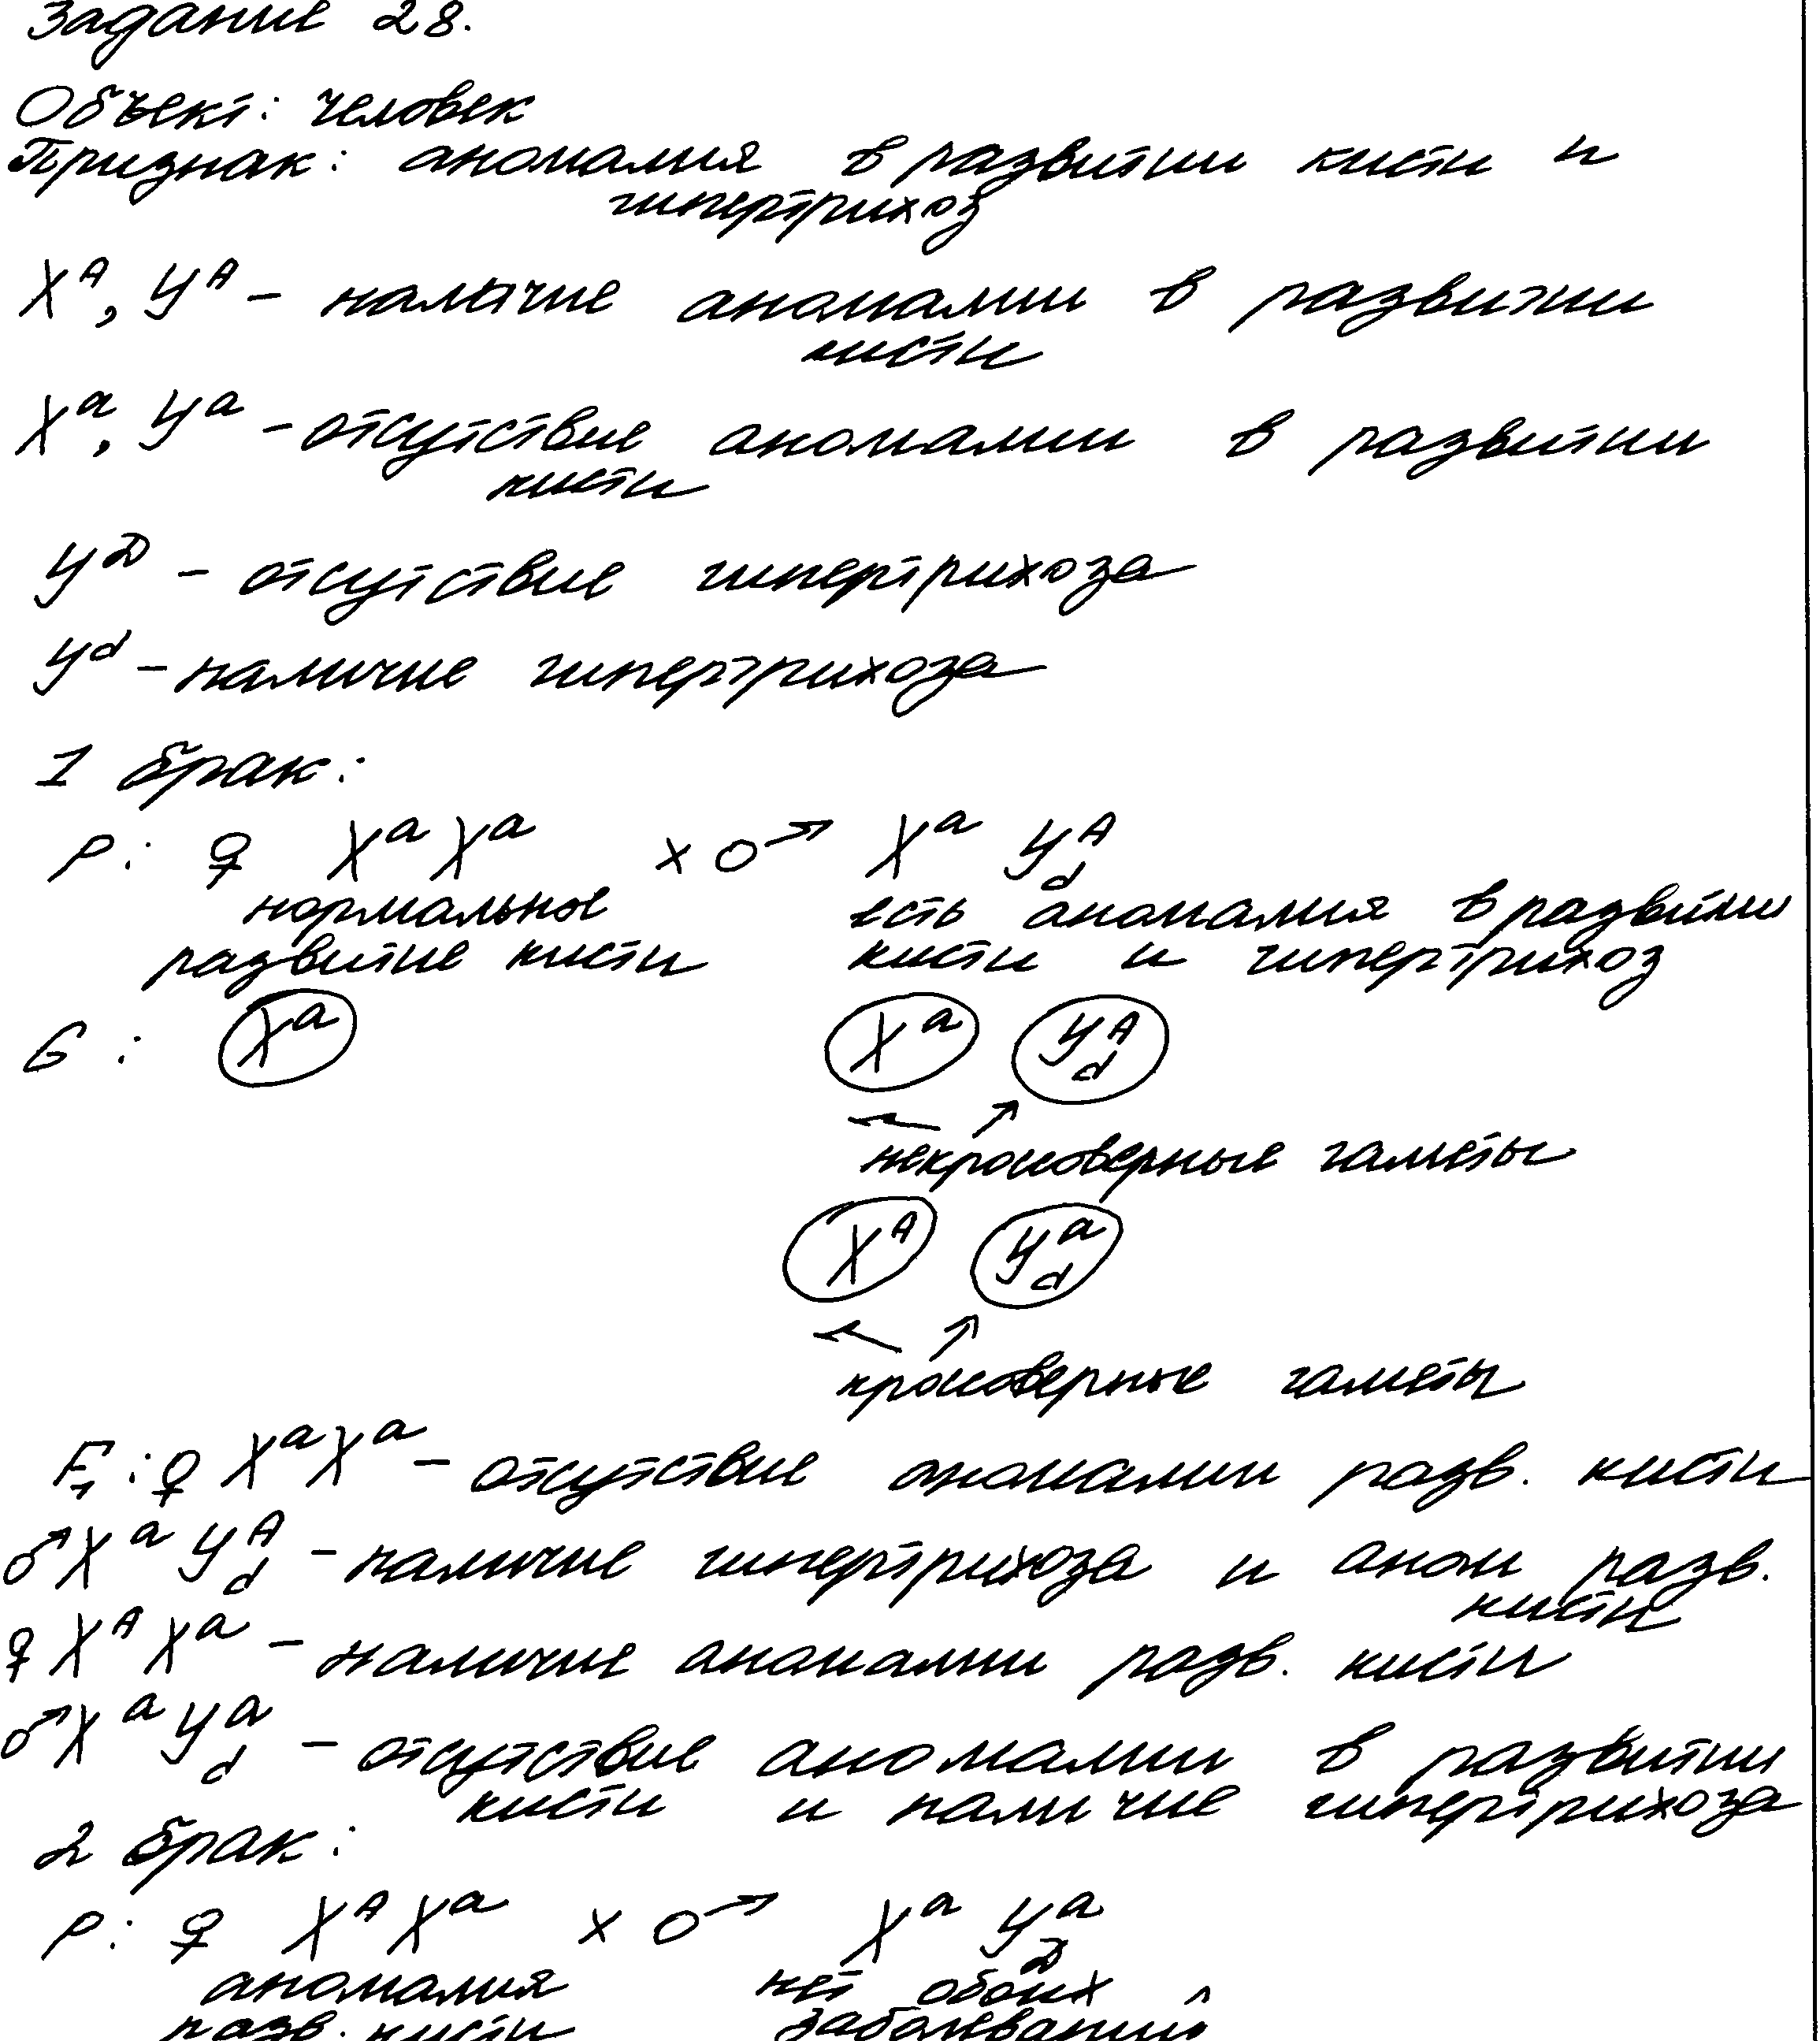 Задание 28.
Объект: человек
Признак: аномалия в развитии кисти и
гипертрихоз
X^A, Y^A – наличие аномалии в развитии
кисти
X^a, Y^a – отсутствие аномалии в развитии
кисти
Y^D – отсутствие гипертрихоза
Y^d – наличие гипертрихоза
1 брак:
P: ♀ X^a X^a x ♂ X^a Y^A_d
нормальное есть аномалия в развитии
развитие кисти кисти и гипертрихоз
G: X^a X^a Y^A_d
некроссоверные гаметы
X^A Y^a_d
кроссоверные гаметы
F₁: ♀ X^a X^a – отсутствие аномалии разв. кисти
♂ X^a Y^A_d – наличие гипертрихоза и аном разв.
кисти
♀ X^A X^a – наличие аномалии разв. кисти
♂ X^a Y^a_d – отсутствие аномалии в развитии
кисти и наличие гипертрихоза
2 брак:
P: ♀ X^A X^a x ♂ X^a Y^a_D
аномалия нет обоих
разв. кисти заболеваний